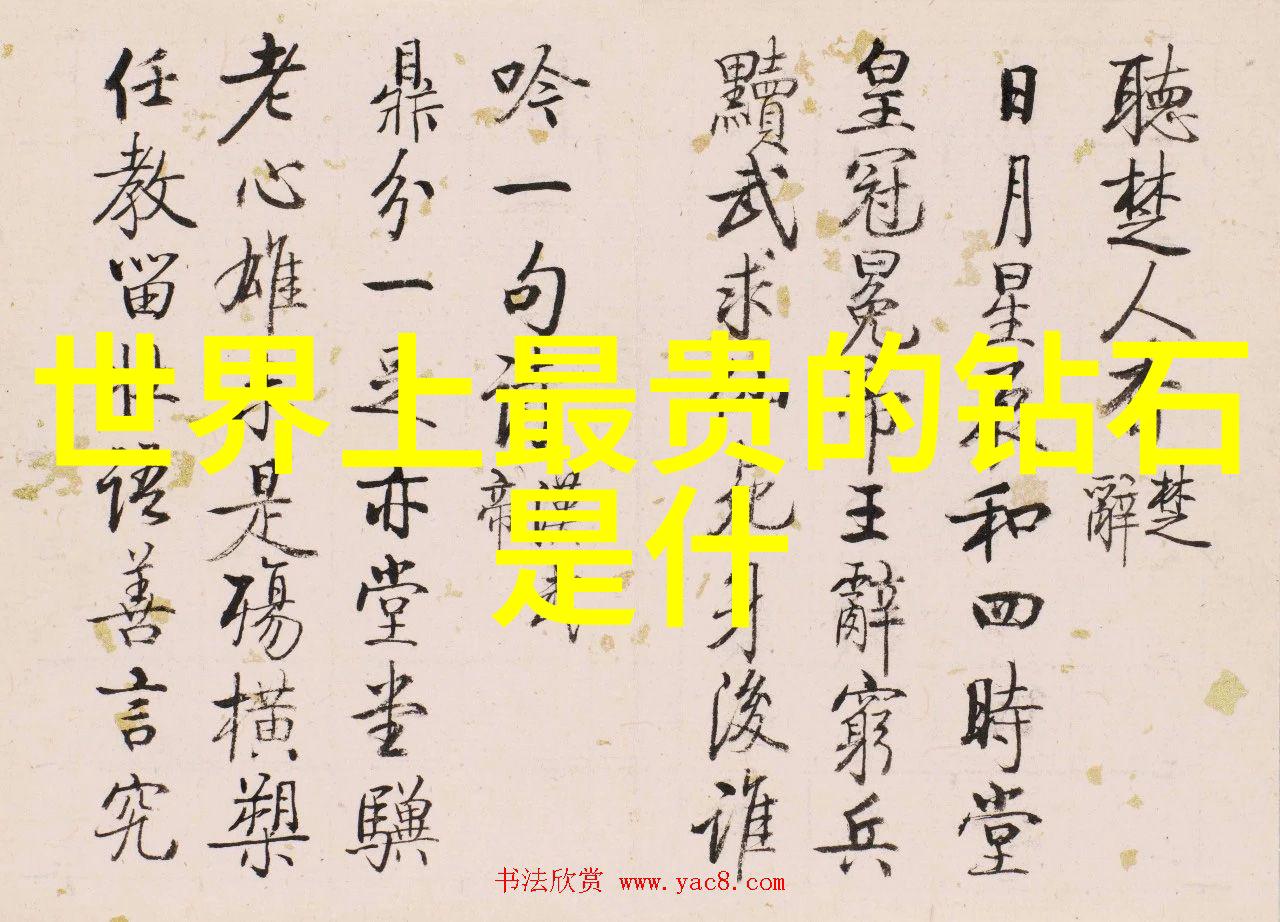 世界上最贵的钻石
是什
聽楚人
楚
辭
日月星辰和四時堂
皇冠冕帝王辭窮兵
黷武求身後誰
吟一句
鼎分一足亦堂堂驥
老心雄是殤橫槊
任教留世語善言究
书法欣赏 www.yac8.com